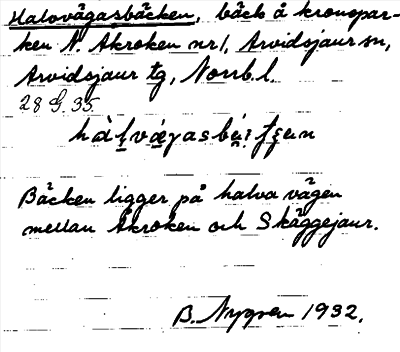 Halvvägasbäcken, bäck å kronopar-
ken N. Akroken nr 1, Arvidsjaur sn,
Arvidsjaur tg, Norrb. l.
28 G. 35.
Bäcken ligger på halva vägen
mellan Åkroken och Skäggejaur.
B. Nygren 1932.